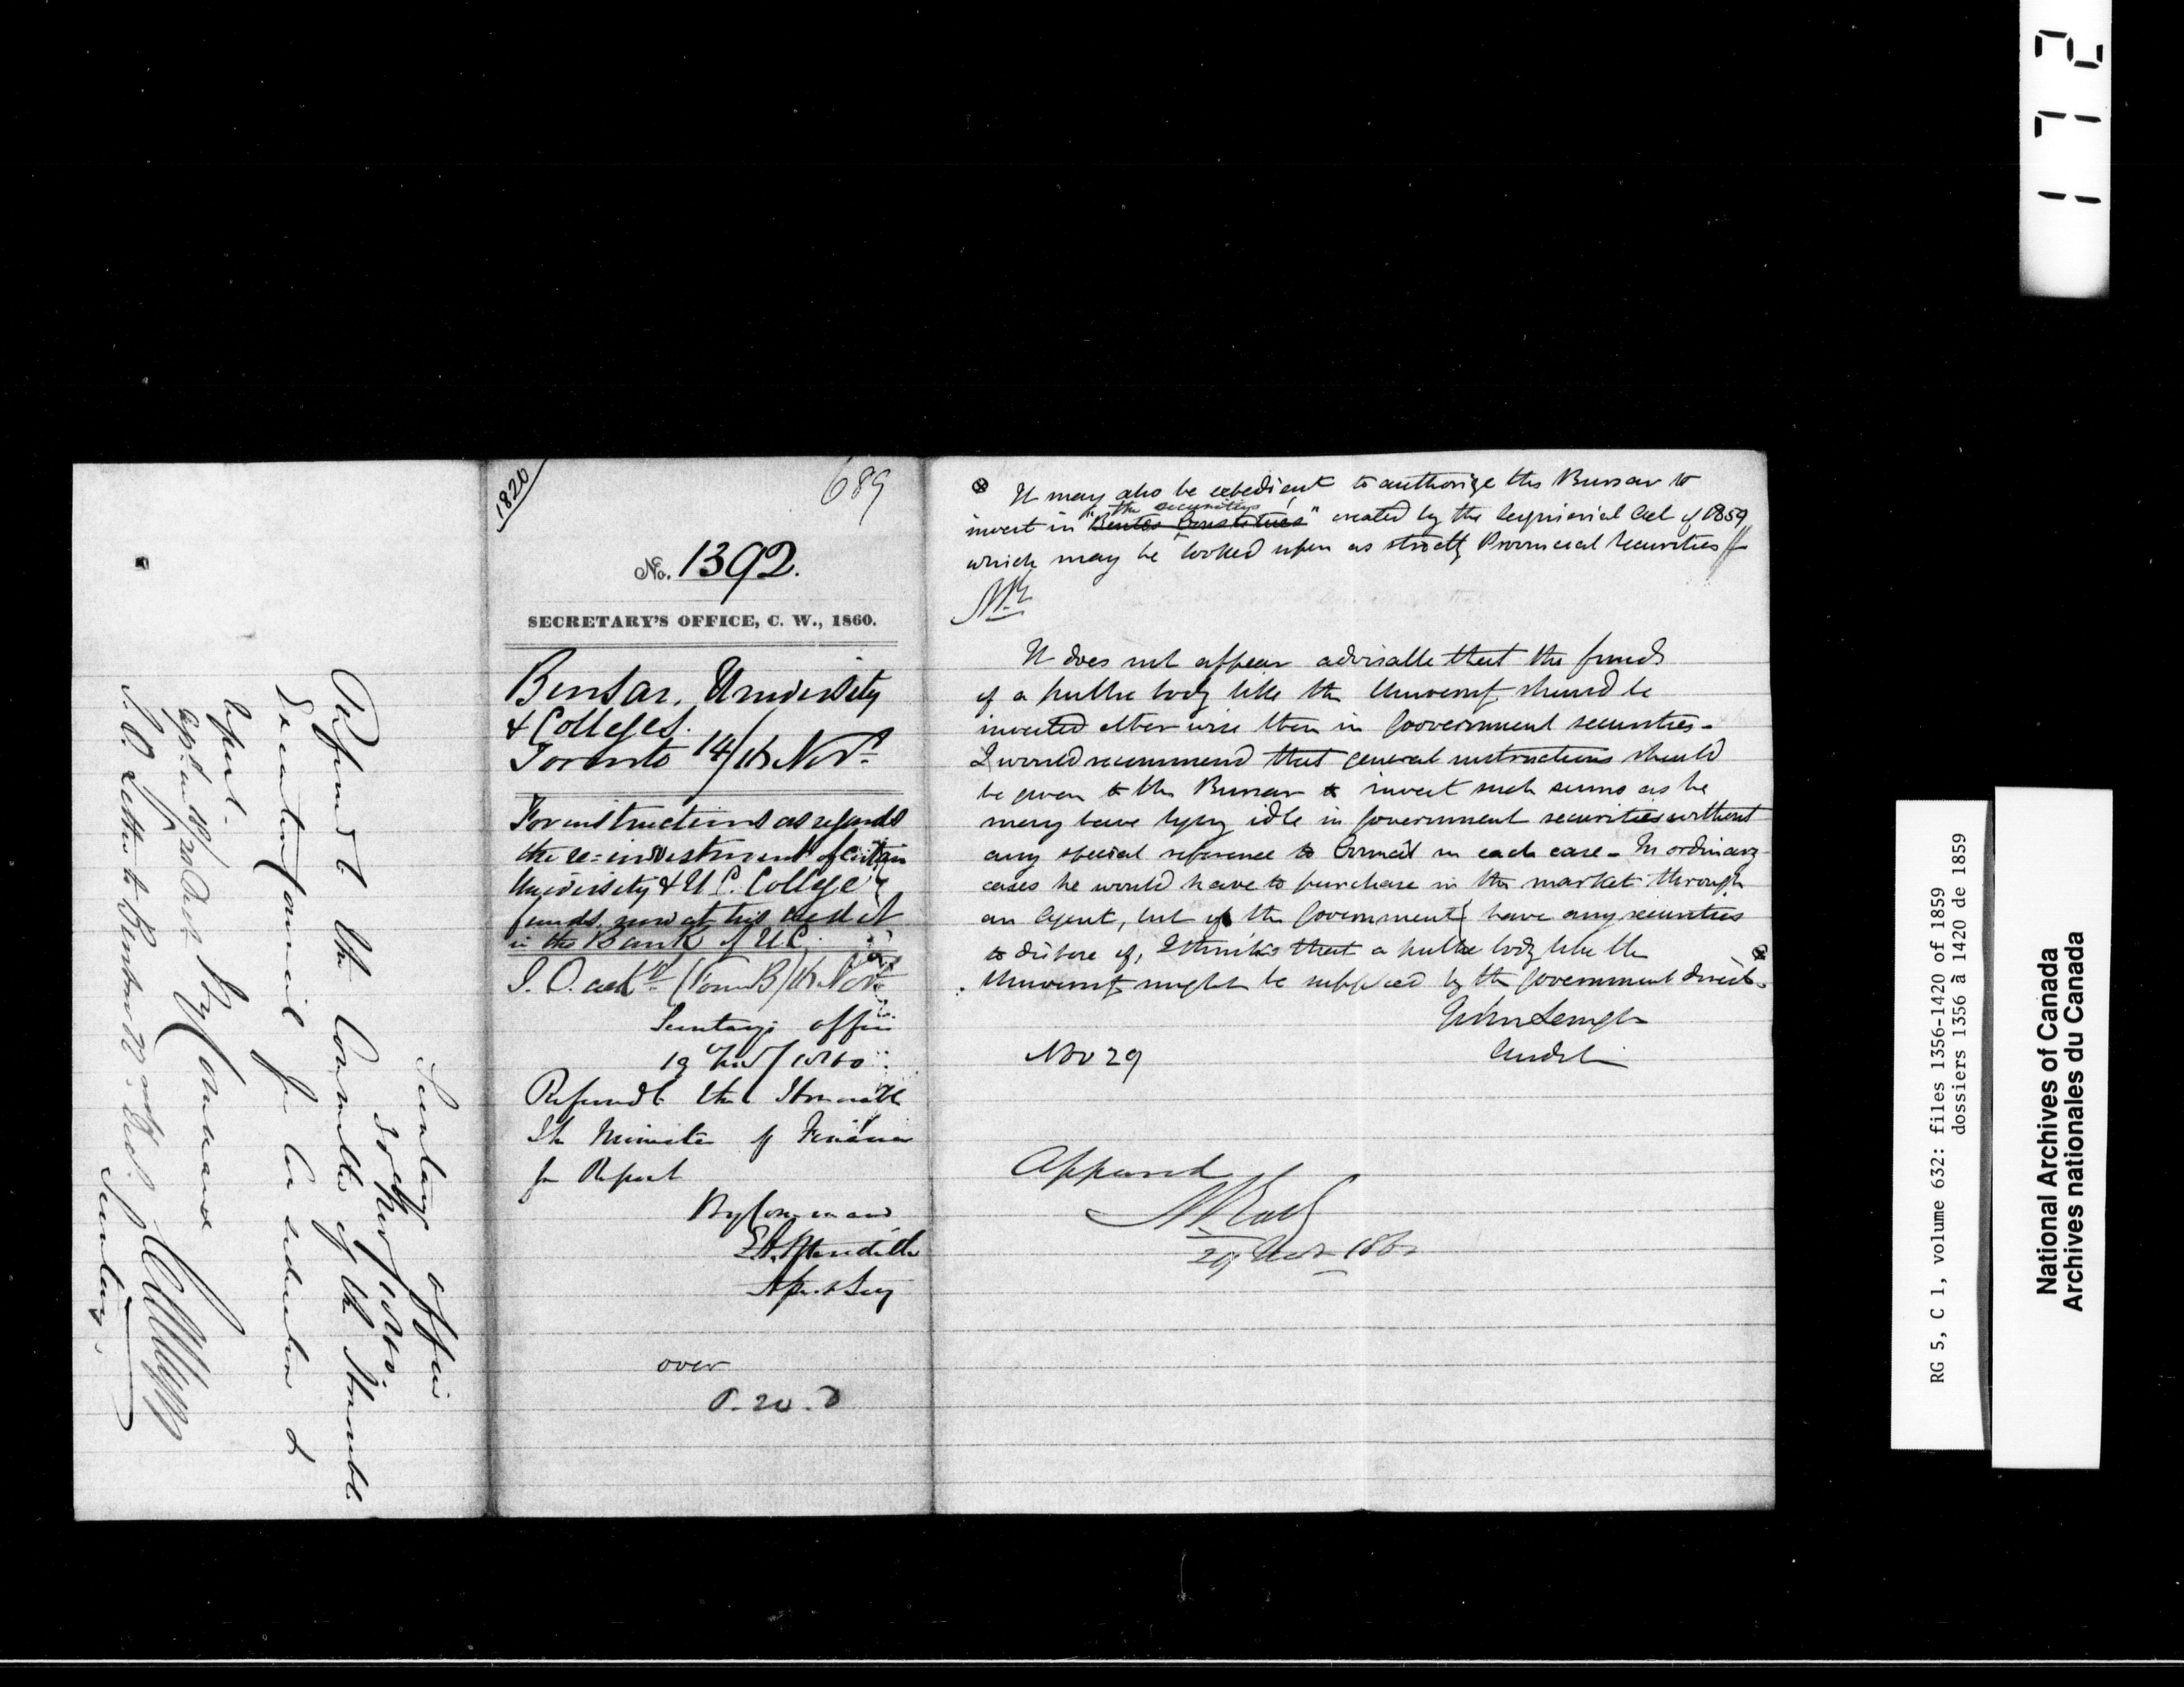 172
1820
689
No. 1392.
SECRETARY'S OFFICE, C. W., 1860.
Bursar, University
& Colleges.
Toronto 14/16 Novr.
For instructions as regards
the re=investment of certain
University & U. C. College
funds now at his credit
in the Bank of U.C.
S. O. ackd. (Form B) 16 Novr
Secretarys office
19 Nov / 1860
Referred to the Honorable
The Minister of Finance
for Report
By Command
E. A. Meredith
Asst Secy
over
P. 20. D
⊗ It may also be expedient to authorize the Bursar to
the securities
invest in "Rentes Constituées" created by the Seignioral Act of 1859
which may be looked upon as strictly Provincial Securities
It does not appear advisable that the funds
of a public body like the University should be
invested otherwise than in Government securities-
I would recommend that general instructions should
be given to the Bursar to invest such sums as he
may have lying idle in Government securities without
any special reference to Council in each case - In ordinary
cases he would have to purchase in the market through
an Agent, but if the Government have any securities
to dispose of, I think that a public body like the
University might be supplied by the Government direct. ⊗
John Langton
Auditor
Nov 29
Approved
29 Nov 1860
Secretarys office
30th Nov / 1860
Referred to the Committee of the Honorable
Executive Council for Consideration &
report.
By Command
S. O. Letter to Bursar 22nd Dec.
Secretary.
RG 5, C 1, volume 632: files 1356-1420 of 1859
dossiers 1356 à 1420 de 1859
National Archives of Canada
Archives nationales du Canada